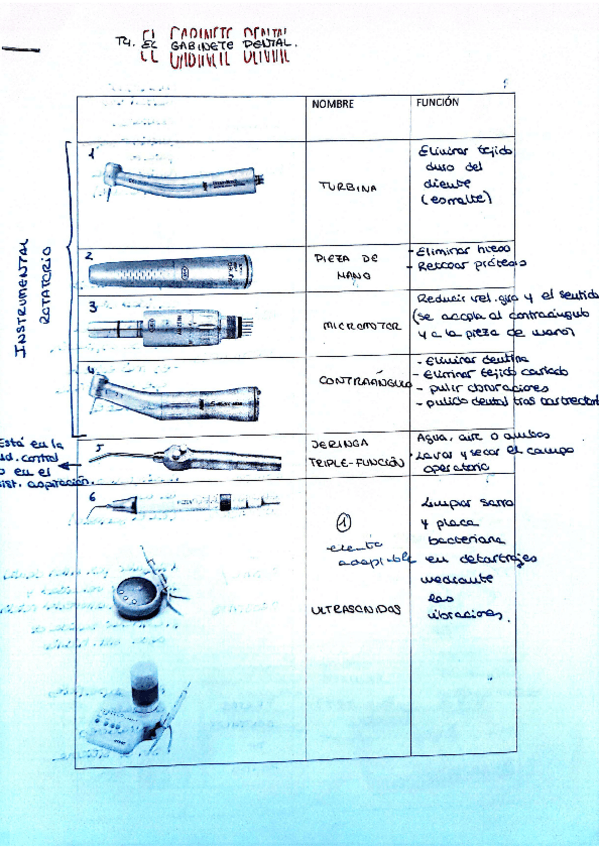 T4. EL GABINETE DENTAL.
NOMBRE
FUNCIÓN
INSTRUMENTAL
ROTATORIO
1
TURBINA
Eliminar tejido
duro del
diente
(esmalte)
2
PIEZA DE
MANO
- Eliminar hueso
- Retocar prótesis
3
MICROMOTOR
Reducir vel. giro y el sentido
(se acopla al contraángulo
y a la pieza de mano)
4
CONTRAÁNGULO
- Eliminar dentina
- Eliminar tejido cariado
- pulir obturaciones
- pulido dental tras
Está en la
ud. control
o en el
sist. aspiración.
5
JERINGA
TRIPLE-FUNCIÓN
Agua, aire o ambos
Lavar y secar el campo
operatorio
6
1
adaptable
ULTRASONIDOS
Limpiar sarro
y placa
bacteriana
en detartrajes
mediante
las
vibraciones.